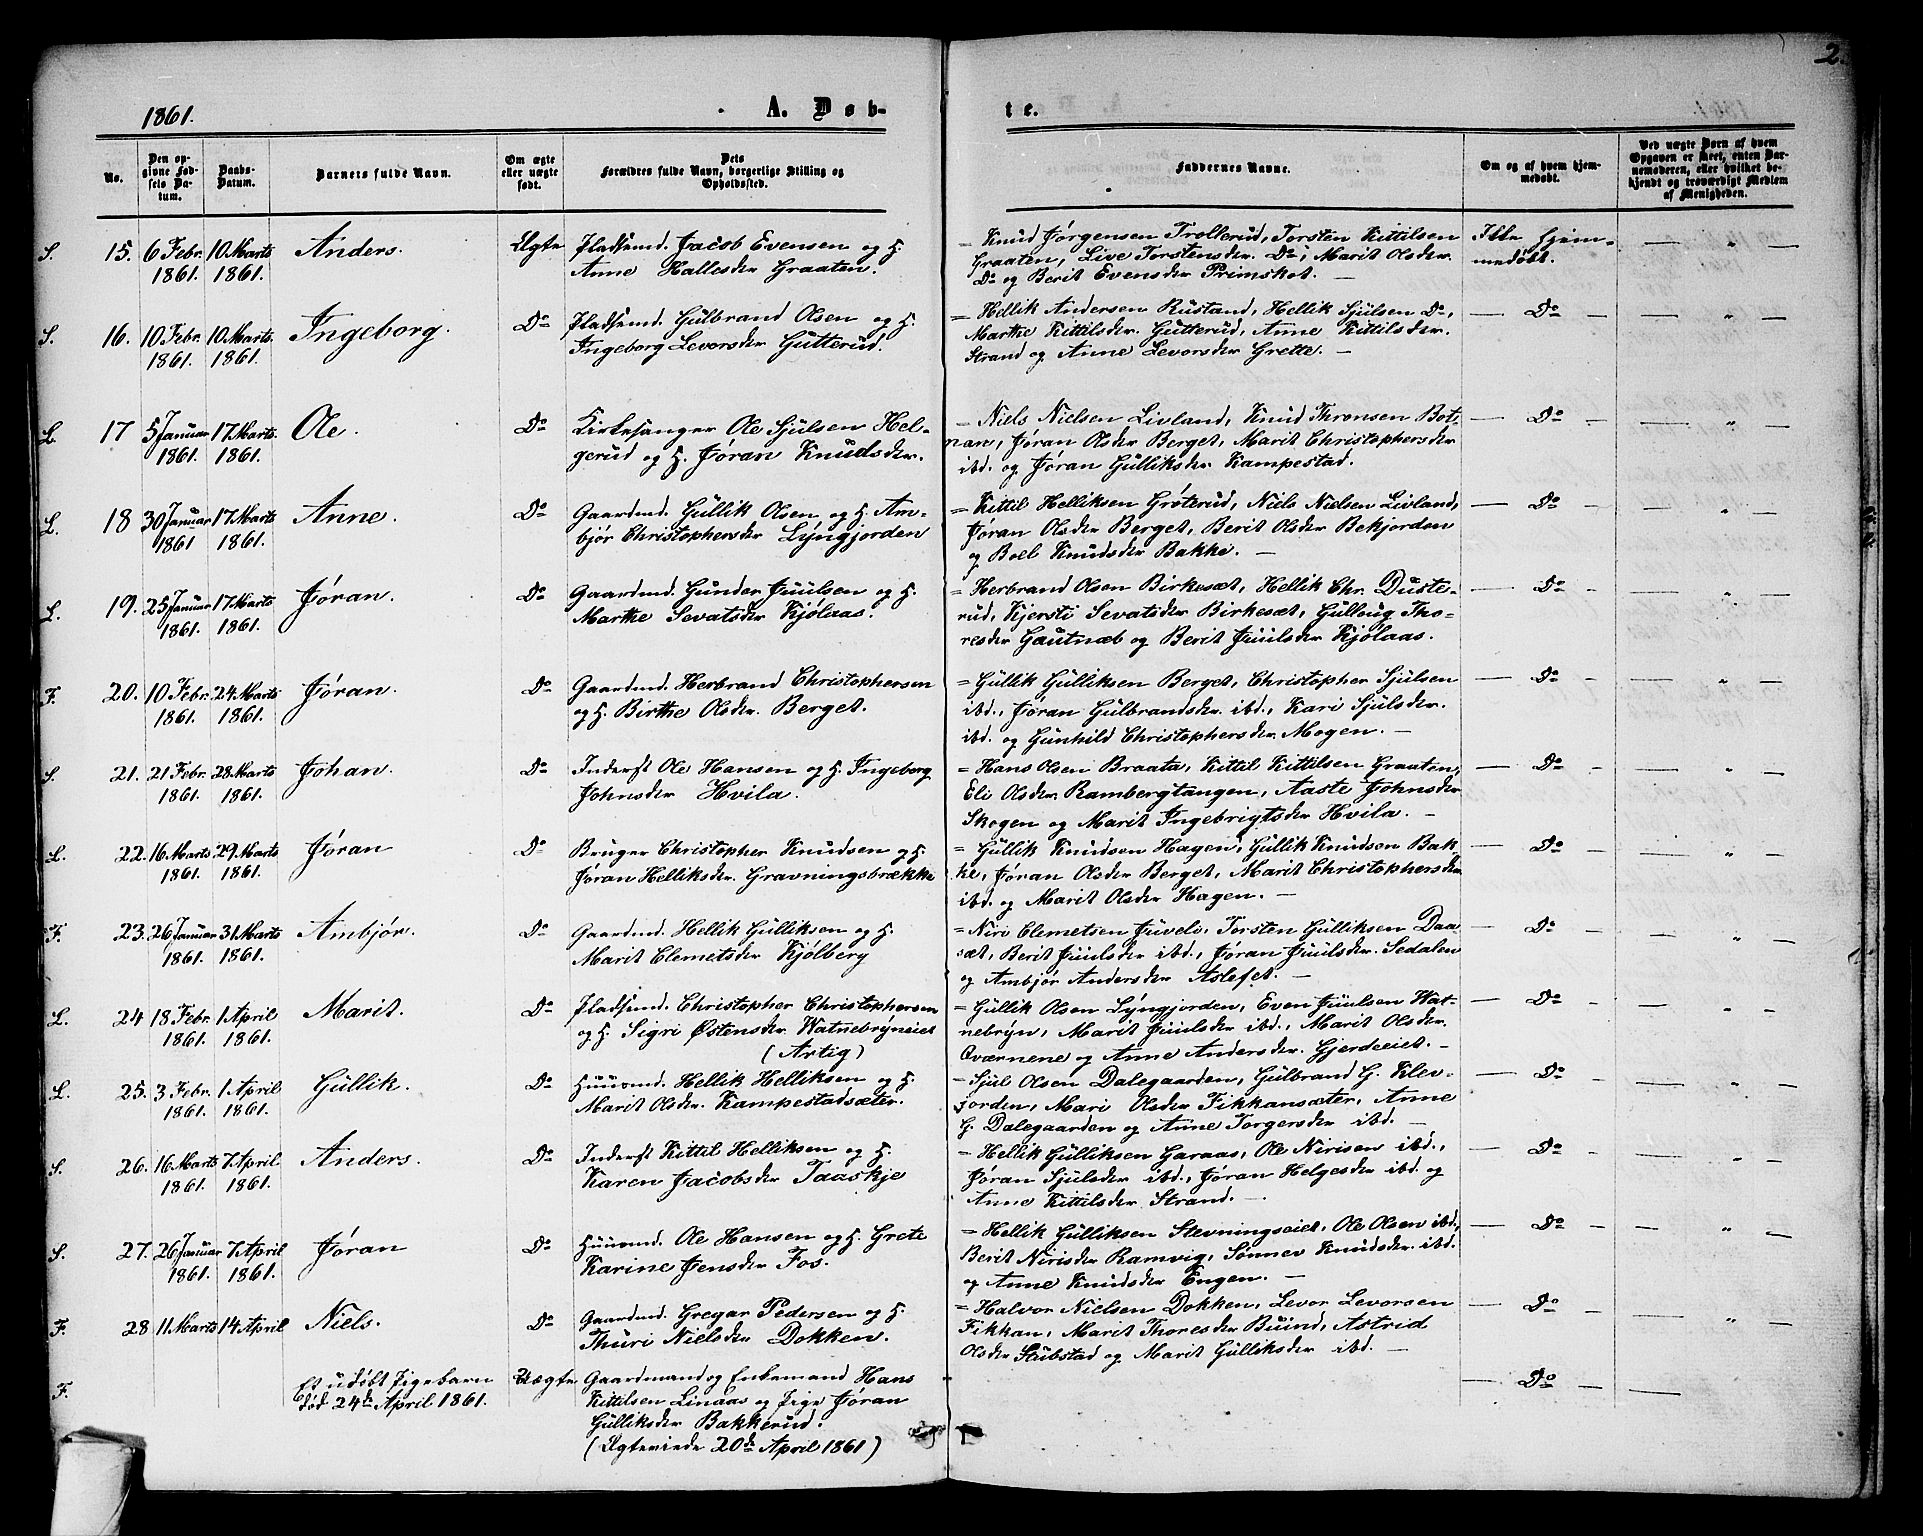 2.
1861. A. Døb- te.
No. | Den opgivne Fødsels Datum. | Daabs-Datum. | Barnets fulde Navn. | Om ægte eller uægte født. | Dets Forældres fulde Navn, borgerlige Stilling og Opholdssted. | Faddernes Navne. | Om og af hvem hjemmedøbt. | Ved uægte Børn af hvem Opgaven er skeet, enten Barnemoderen, eller hvilket bekjendt og troværdigt Medlem af Menigheden.
S. 15. 6 Febr. 1861. 10 Marts 1861. Anders. Ægte Pladsemd. Jacob Evensen og H.
Anne Hallesdr Graaten.
= Knud Jørgensen Trollerud, Torsten Kittilsen
Graaten, Live Torstensdr. Do, Marit Olsdr.
Do og Berit Evensdr Primskot. —
Ikke hjem-
medøbt. — " —
S. 16. 10 Febr. 1861. 10 Marts. 1861. Ingeborg. Do Pladsemd. Gülbrand Olsen og H.
Ingeborg Levorsdr Gütterud.
= Hellik Andersen Rustand, Hellik Sjülsen Do,
Marthe Kittilsdr. Gütterud, Anne Kittilsdr.
Strand og Anne Levorsdr Grette. —
— Do — — " —
L. 17 5 Januar 1861. 17 Marts. 1861. Ole. Do Kirkesanger Ole Sjülsen Hel-
gerud og H. Jøran Knudsdr.
= Niels Nielsen Livland, Knud Thronsen Bot-
nan, Jøran Olsdr Berget, Marit Christophersdr
ibd. og Jøran Gülliksdr Kampestad.
— Do — — " —
L. 18 30 Januar 1861 17 Marts 1861. Anne. Do Gaardmd. Güllik Olsen og H. Am-
bjør Christophersdr Lÿngjorden
= Kittil Helliksen Grøterud, Niels Nielsen Livland,
Jøran Olsdr Berget, Berit Olsdr Bekjorden
og Boel Knudsdr Bakke. —
— Do — — " —
L. 19. 25 Januar 1861. 17 Marts 1861. Jøran. Do Gaardmd. Gunder Juulsen og H.
Marthe Sevatsdr Kjølaas.
= Herbrand Olsen Birkesæt, Hellik Chr. Düste-
rud, Kjersti Sevatsdr Birkesæt, Gülloug Tho-
resdr Gautnæb og Berit Juulsdr Kjølaas.
— Do — — " —
F. 20. 10 Febr. 1861. 24 Marts 1861. Jøran. Do Gaardmd. Herbrand Christophersen
og H. Birthe Olsdr. Berget.
= Güllik Gülliksen Berget, Christopher Sjülsen
ibd., Jøran Gülbrandsdr. ibd., Kari Sjülsdr.
ibd. og Günhild Christophersdr. Mogen. —
— Do — — " —
S. 21. 21 Febr. 1861. 28 Marts 1861. Johan. Do Inderst Ole Hansen og H. Ingeborg
Johnsdr Hvila.
= Hans Olsen Braata, Kittil Kittilsen Graaten,
Eli Olsdr. Rambergtangen, Aaste Johnsdr
Skogen og Marit Ingebrigtsdr Hvila. —
— Do — — " —
L. 22. 16 Marts 1861. 29 Marts 1861. Jøran Do Bruger Christopher Knudsen og H.
Jøran Helliksdr. Gravningsbrække
= Güllik Knudsen Hagen, Güllik Knudsen Bak-
ke, Jøran Olsdr Berget, Marit Christophersdr
ibd. og Marit Olsdr Hagen. —
— Do — — " —
F. 23. 26 Januar 1861. 31 Marts 1861. Ambjør. Do Gaardmd. Hellik Gülliksen og H.
Marit Clemetsdr Kjølberg
= Niri Clemetsen Juveli, Torsten Gülliksen Daa-
sæt, Berit Juulsdr ibd., Jøran Juulsdr. Sedalen
og Ambjør Andersdr Aslefet. —
— Do — — " —
L. 24 18 Febr. 1861. 1 April 1861. Marit. Do Pladsemd. Christopher Christophersen
og H. Sigri Østensdr. Watnebrÿneiet
(Artig)
= Güllik Olsen Lÿngjorden, Even Juulsen Wat-
nebrÿn, Marit Juulsdr ibd., Marit Olsdr.
Qværnene og Anne Andersdr. Gjerdeeiet. —
— Do — — " —
L. 25. 3 Febr. 1861. 1 April 1861. Güllik. Do Huusmd. Hellik Helliksen og H.
Marit Olsdr. Kampestadsæter.
= Sjül Olsen Dalegaarden, Gülbrand G. Klev-
jorden, Mari Olsdr Fikkansæter, Anne
G. Dalegaarden og Anne Torgersdr ibd. —
— Do — — " —
S. 26. 16 Marts 1861. 7 April 1861. Anders. Do Inderst Kittil Helliksen og H.
Karen Jacobsdr Taaskje
= Hellik Gülliksen Garaas, Ole Nirisen ibd.,
Jøran Sjülsdr ibd., Jøran Helgesdr ibd. og
Anne Kittilsdr Strand. —
— Do — — " —
S. 27. 26 Januar 1861. 7 April 1861. Jøran Do Huusmd. Ole Hansen og H. Grete
Karine Jensdr Fos.
= Hellik Gülliksen Stevningseiet, Ole Olsen ibd.,
Berit Nirisdr Ramvig, Sønnev Knudsdr. ibd.
og Anne Knudsdr Engen. —
— Do — — " —
F. 28 11 Marts 14 April Niels. Do Gaardmd. Gregar Pedersen og H.
Thuri Nielsdr Dokken.
= Halvor Nielsen Dokken, Levor Levorsen
Fikkan, Marit Thoresdr Buind, Astrid
Olsdr Stübstad og Marit Gülliksdr ibd. —
— Do — — " —
F. Et udøbt Pigebarn
død 24de April 1861. Uægte Gaardmand og Enkemand Hans
Kittilsen Linaas og Pige Jøran
Gülliksdr Bakkerud.
(Ægteviede 20de April 1861)
— Do — —